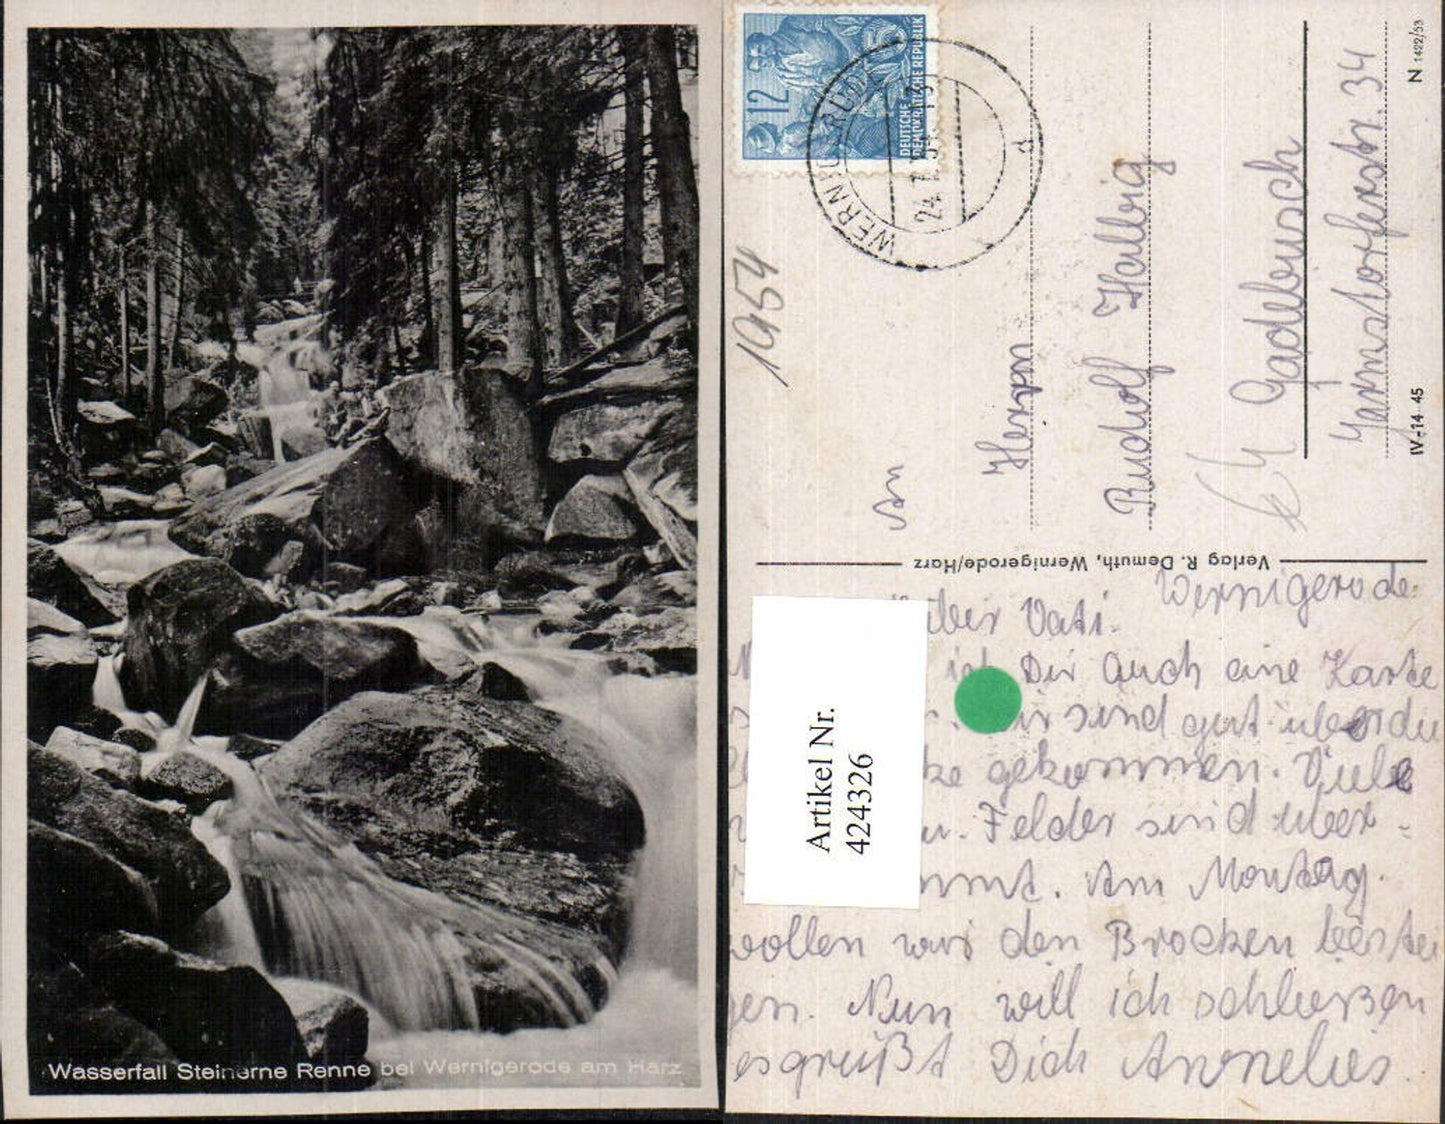 Wasserfall Steinerne Renne bei Wernigerode am Harz
12
15
DEUTSCHE
DEMOKRATISCHE REPUBLIK
WERNIGERODE
24.7.54
d
1954
An
Herrn
Rudolf Halbig
Gadebusch
Jarmstorferstr. 34
N 1422/53
IV-14-45
Verlag R. Demuth, Wernigerode/Harz
Artikel Nr.
424326
Wernigerode
Vati.
ich Dir auch eine Karte
sind gut über die
gekommen. Viele
Felder sind über-
Am Montag
wollen wir den Brocken bestei
gen. Nun will ich schließen
es grüßt Dich Annelies.